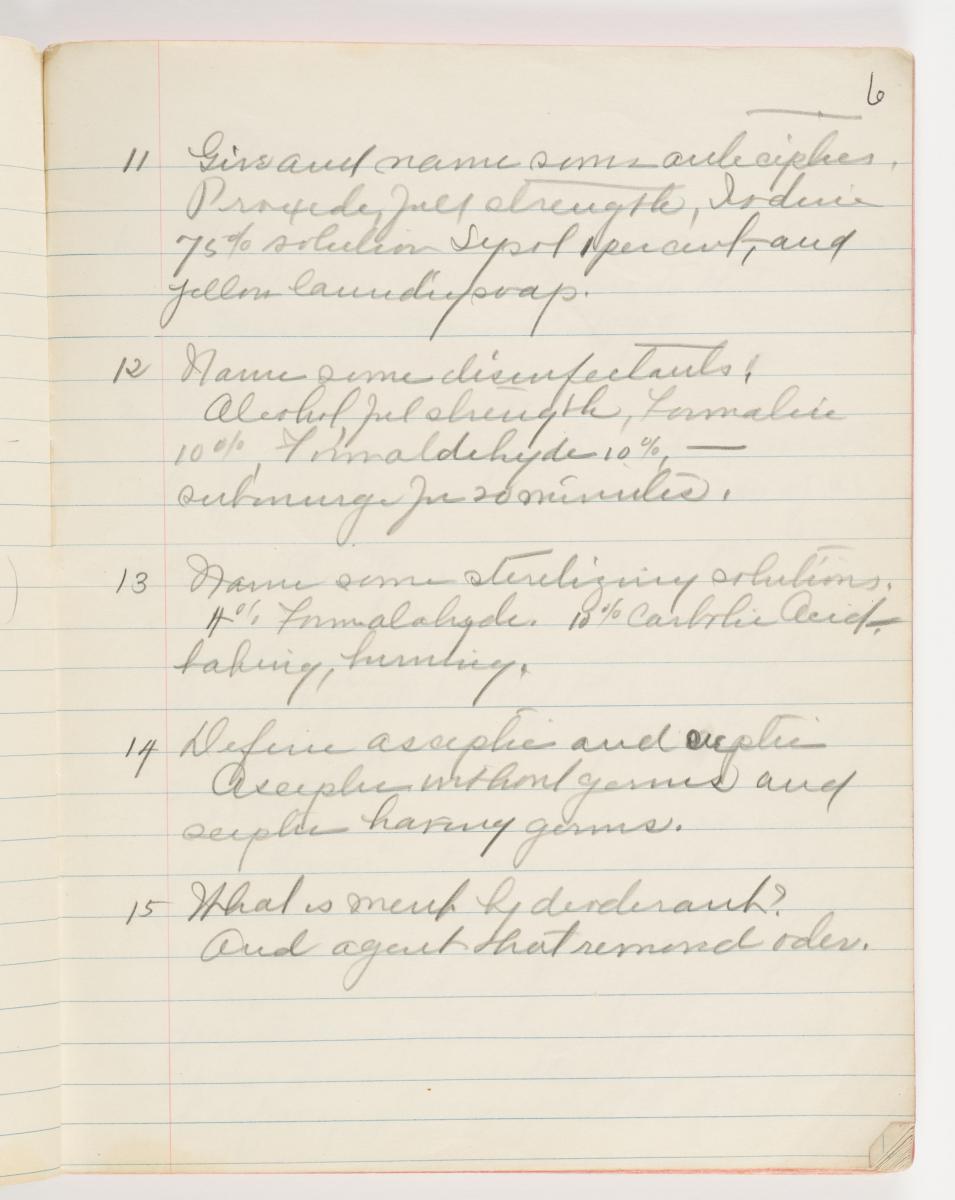 6
11 Give and name some anteceptics.
Proxide, full strength, Iodine
75% solution Lysol 1 percent, and
yellow laundry soap.
12 Name some disenfectants.
Alcohol, full strength, Formaline
10%, Formaldehyde 10%, —
submurge for 20 minutes.
13 Name some sterelizing solutions.
4% Formalahyde. 10% Carbolic Acid.
baking, burning.
14 Define asceptic and ceptic
Asceptic without germs and
sceptic having germs.
15 What is ment by deoderant?
And agent that removed oder.